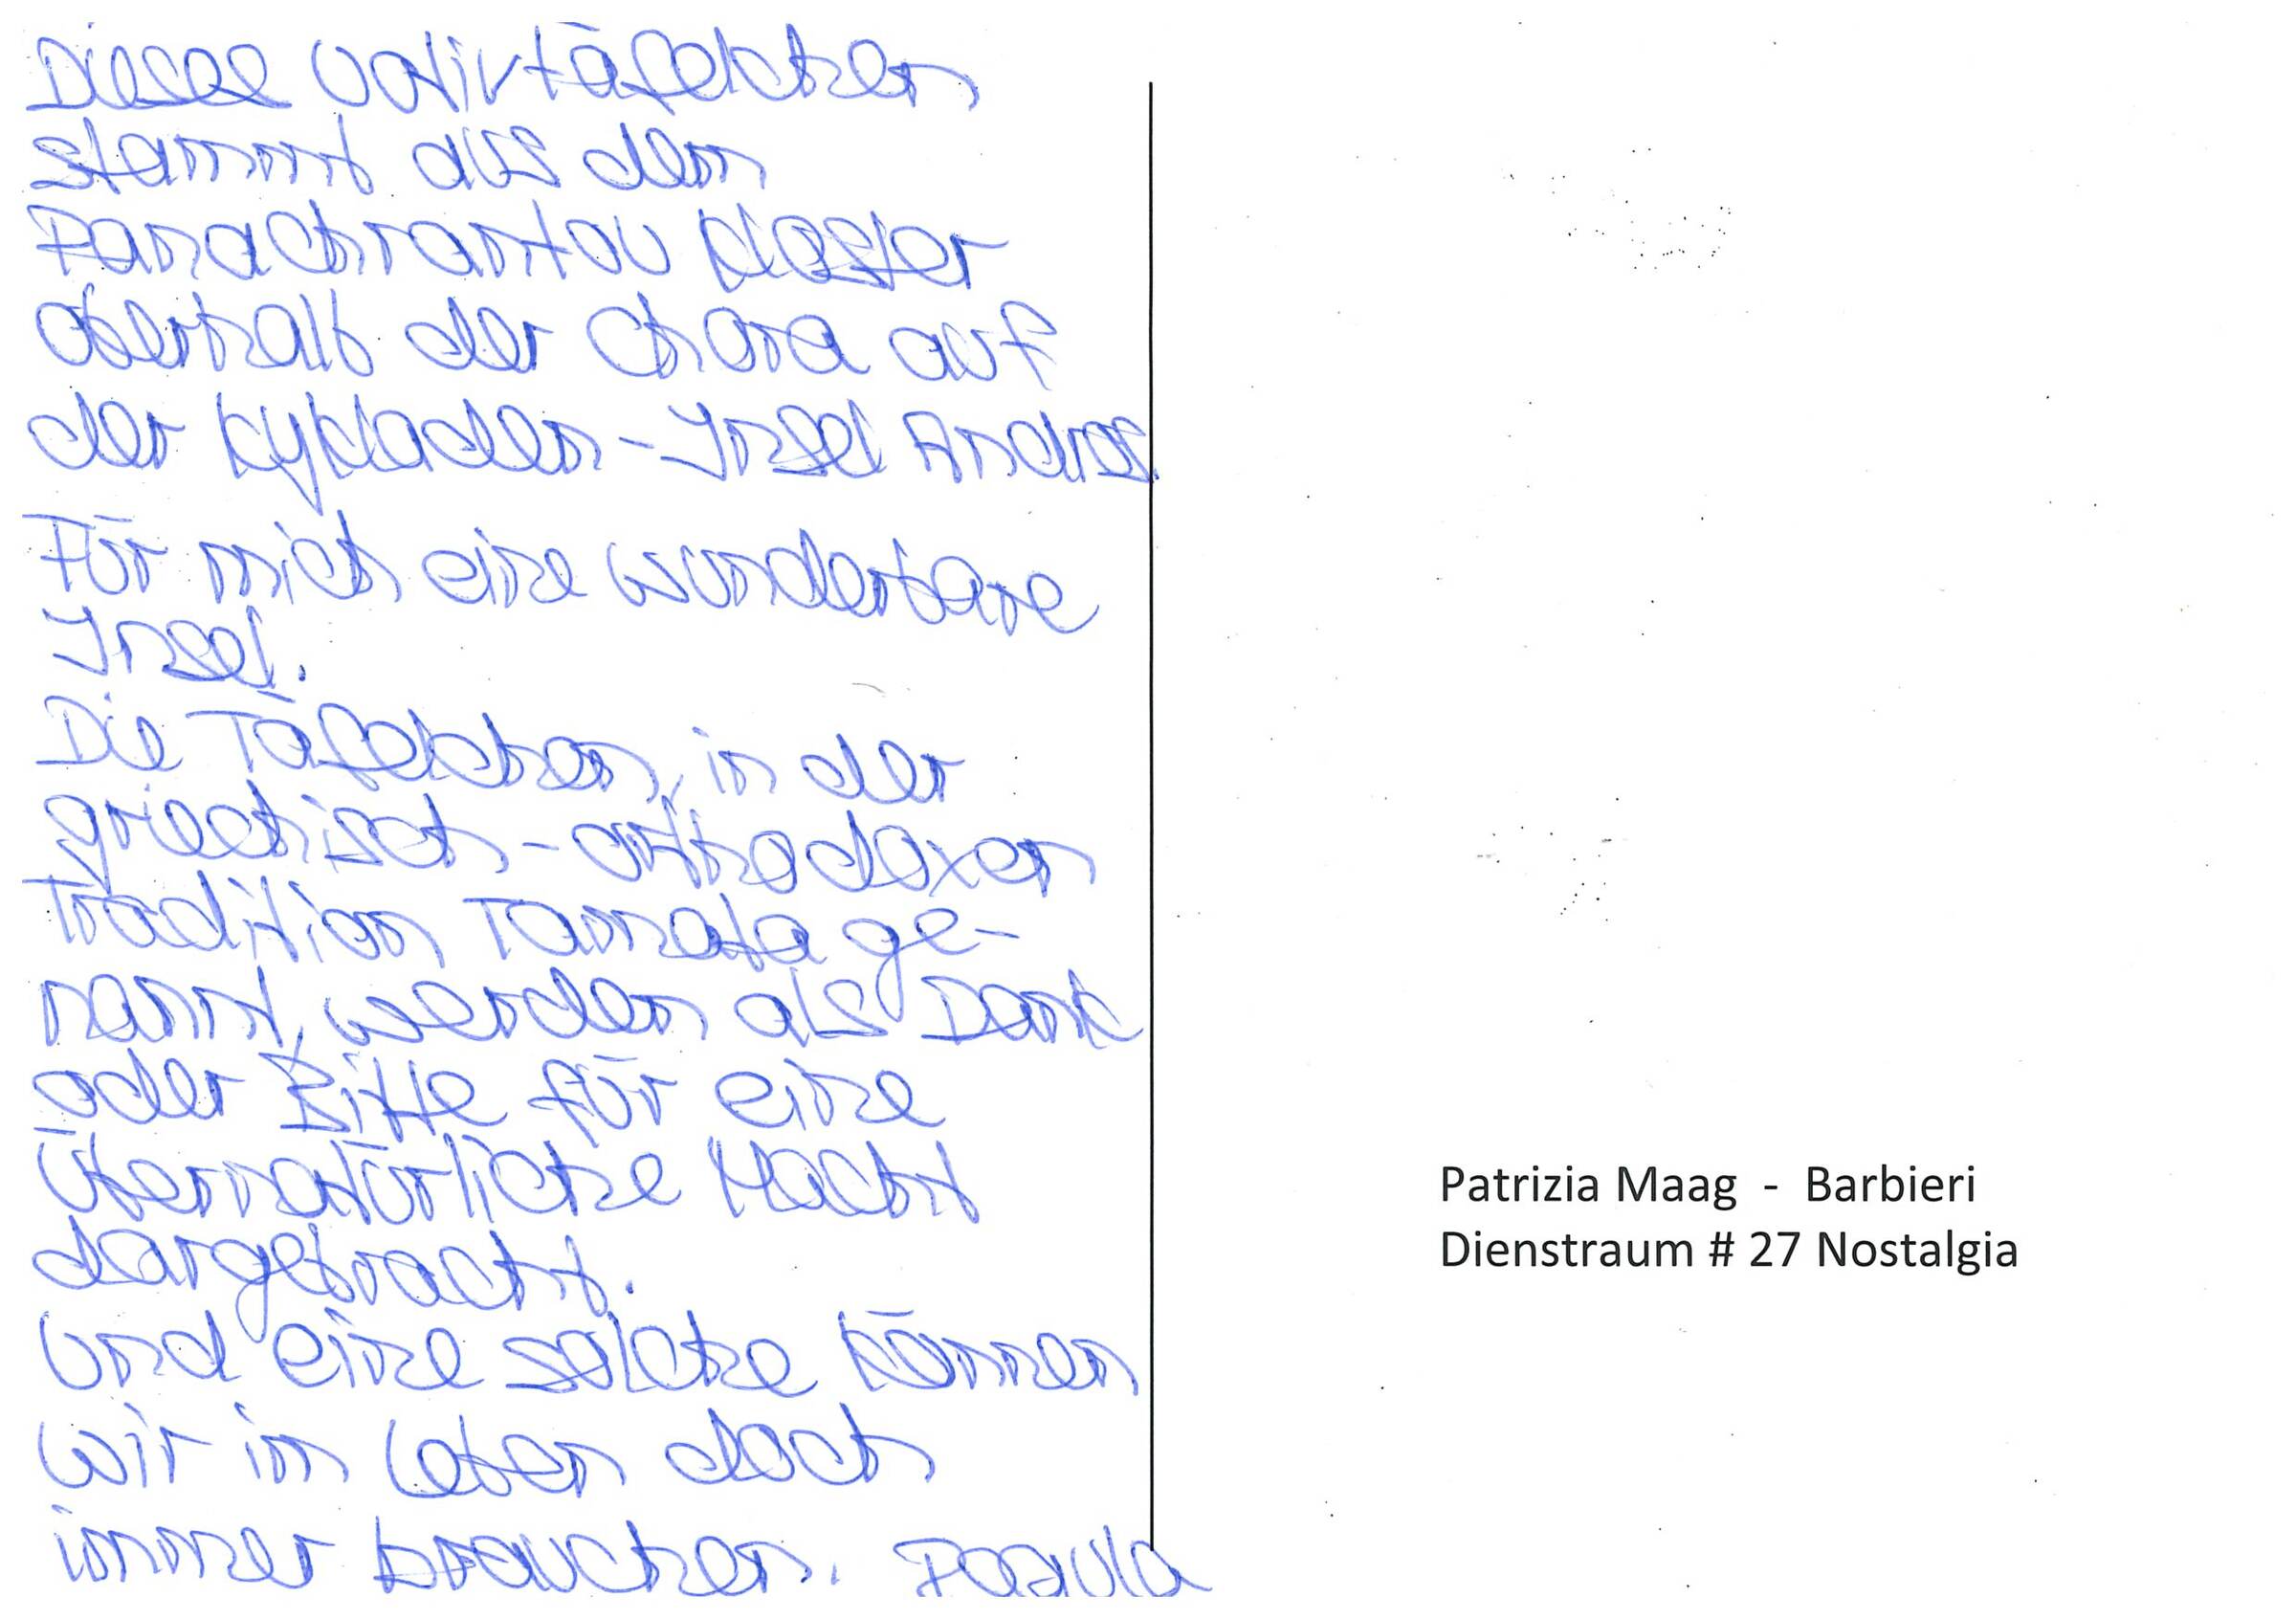 Dieses Votivtäfelchen
stammt aus dem
Panachrantou Kloster
oberhalb der Chora auf
der Kykladen-Insel Andros.
Für mich eine wunderbare
Insel.
Die Täfelchen, in der
griechisch-orthodoxen
Tradition Tamata ge-
nannt, werden als Dank
oder Bitte für eine
übernatürliche Macht
dargebracht.
Und eine solche können
wir im Leben doch
immer brauchen.
Patrizia Maag - Barbieri
Dienstraum # 27 Nostalgia